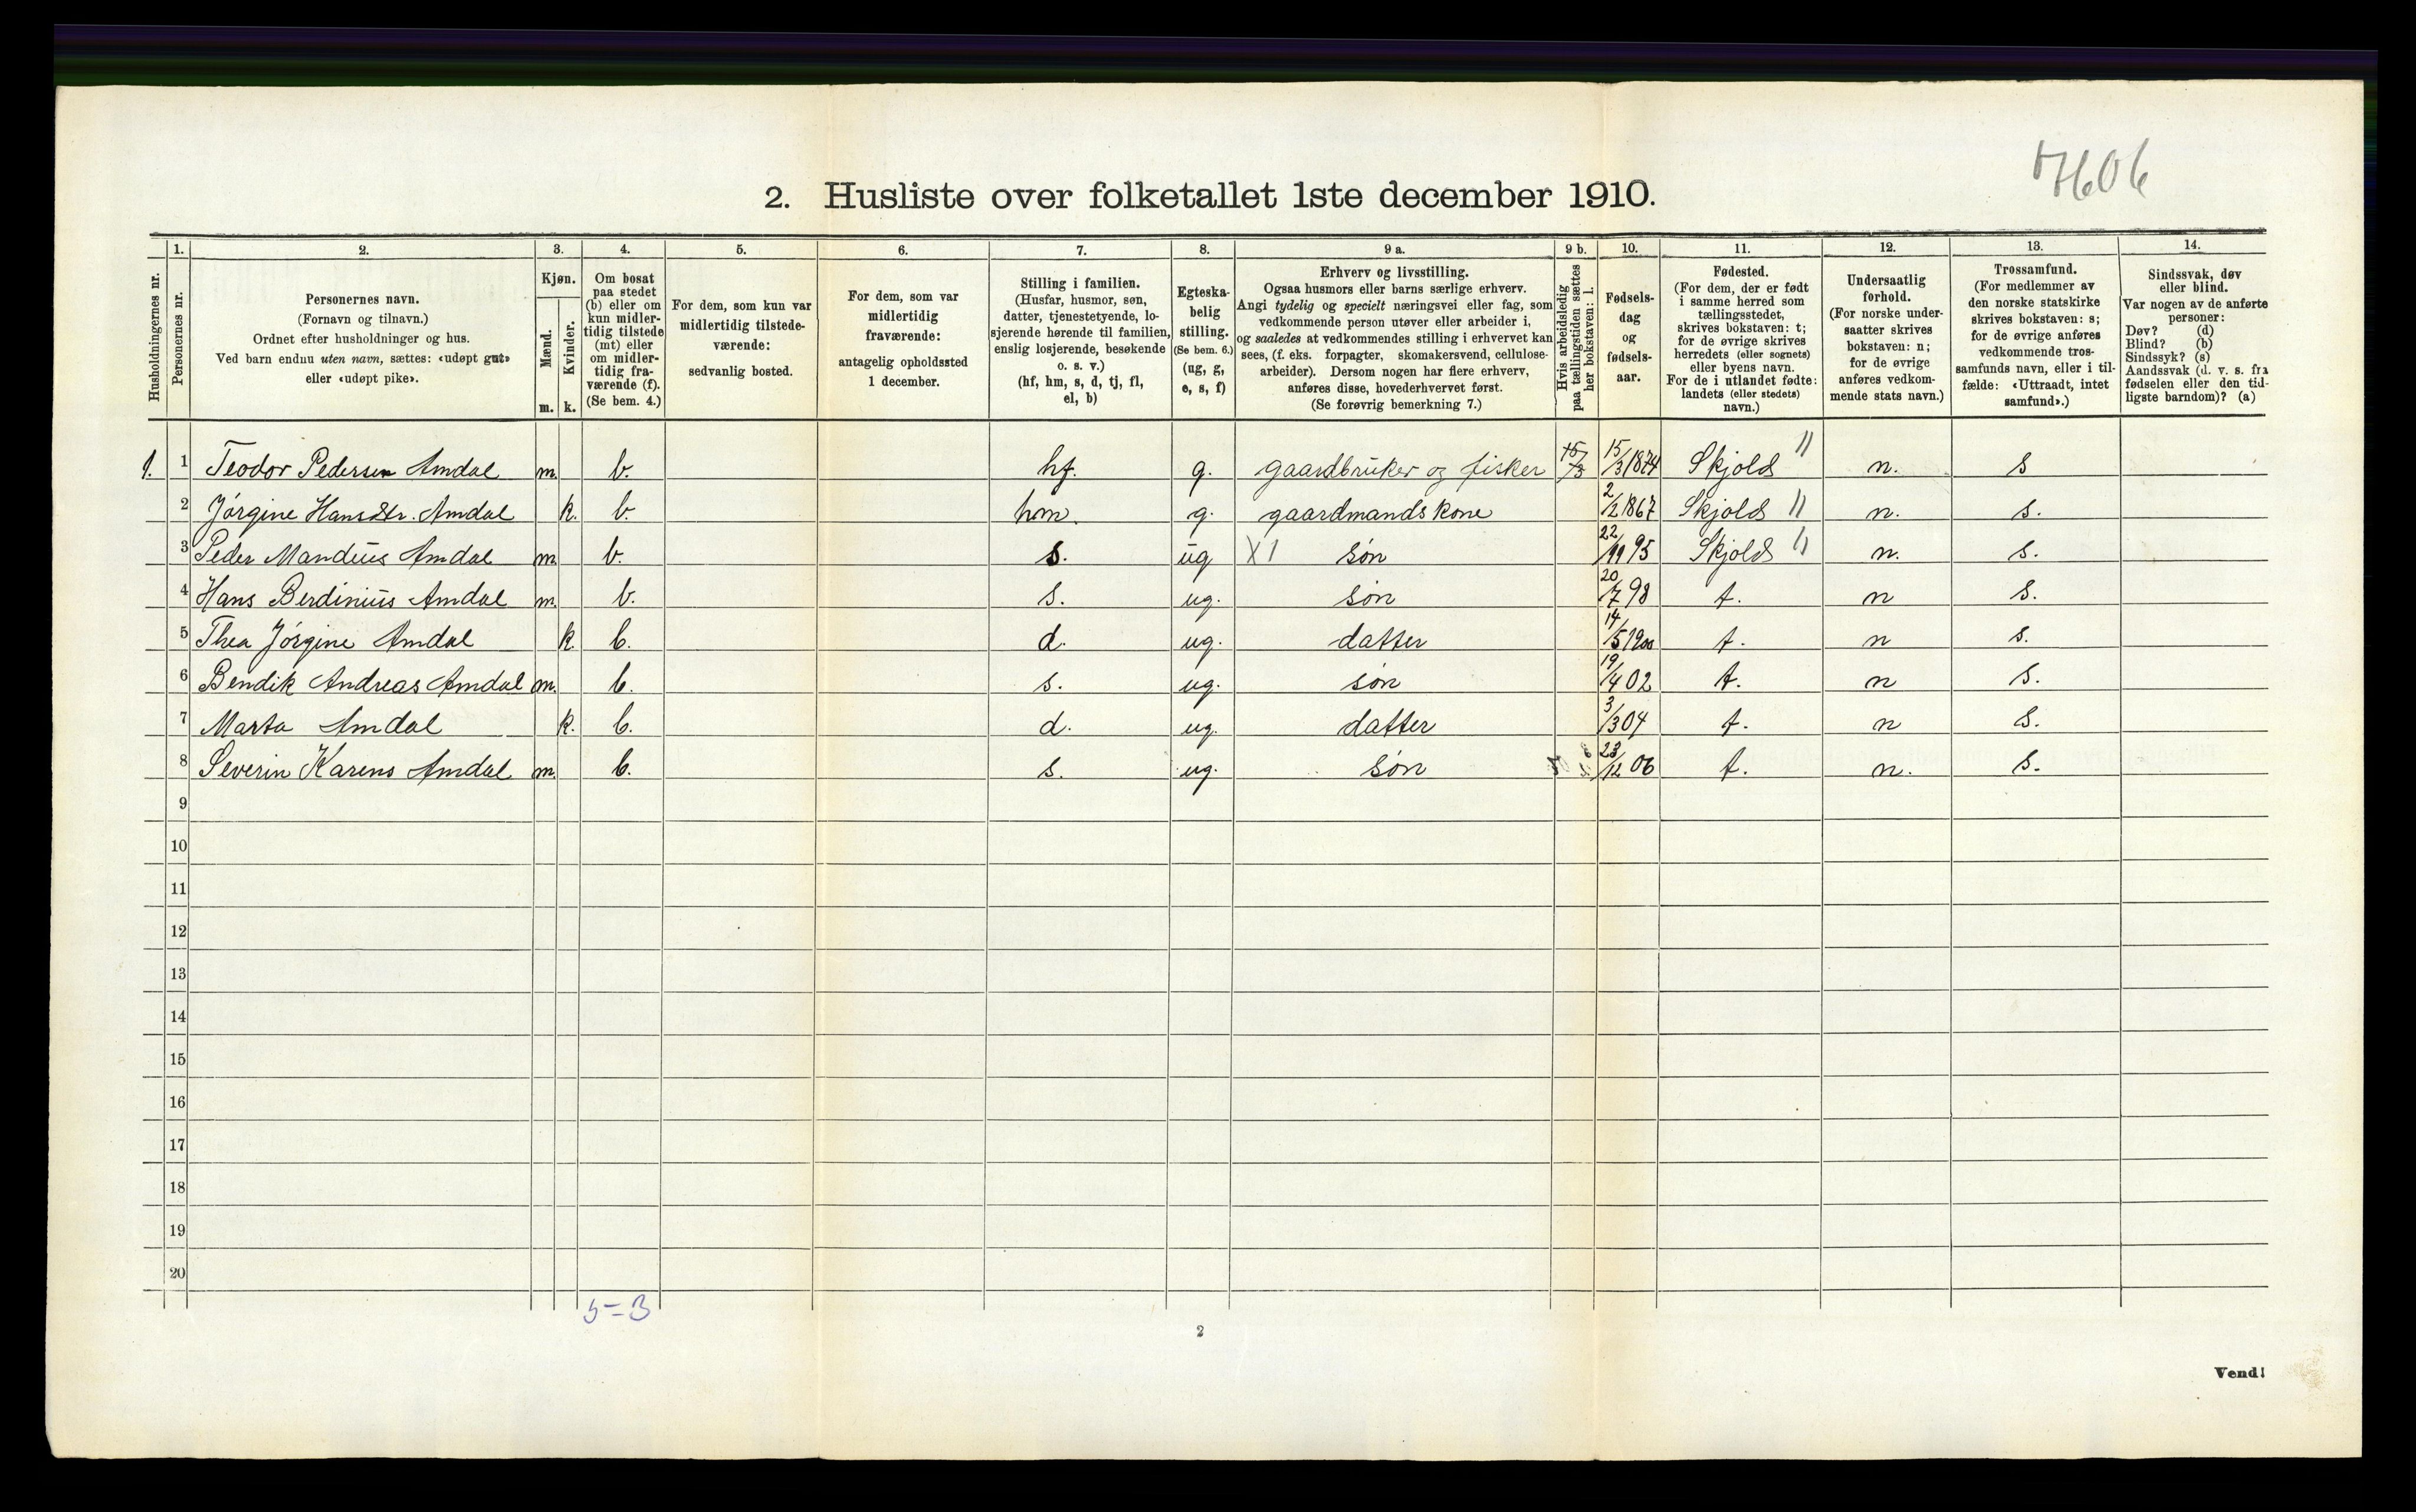 7606
2. Husliste over folketallet 1ste december 1910.
1. 2. 3. 4. 5. 6. 7. 8. 9 a. 9 b. 10. 11. 12. 13. 14.
Husholdningernes nr.
Personernes nr.
Personernes navn.
(Fornavn og tilnavn.)
Ordnet efter husholdninger og hus.
Ved barn endnu uten navn, sættes: «udøpt gut»
eller «udøpt pike».
Kjøn.
Mænd.
Kvinder.
m. k.
Om bosat
paa stedet
(b) eller om
kun midler-
tidig tilstede
(mt) eller
om midler-
tidig fra-
værende (f).
(Se bem. 4.)
For dem, som kun var
midlertidig tilstede-
værende:
sedvanlig bosted.
For dem, som var
midlertidig
fraværende:
antagelig opholdssted
1 december.
Stilling i familien.
(Husfar, husmor, søn,
datter, tjenestetyende, lo-
sjerende hørende til familien,
enslig losjerende, besøkende
o. s. v.)
(hf, hm, s, d, tj, fl,
el, b)
Egteska-
belig
stilling.
(Se bem. 6.)
(ug, g,
e, s, f)
Erhverv og livsstilling.
Ogsaa husmors eller barns særlige erhverv.
Angi tydelig og specielt næringsvei eller fag, som
vedkommende person utøver eller arbeider i,
og saaledes at vedkommendes stilling i erhvervet kan
sees, (f. eks. forpagter, skomakersvend, cellulose-
arbeider). Dersom nogen har flere erhverv,
anføres disse, hovederhvervet først.
(Se forøvrig bemerkning 7.)
Hvis arbeidsledig
paa tællingstiden sættes
her bokstaven: l.
Fødsels-
dag
og
fødsels-
aar.
Fødested.
(For dem, der er født
i samme herred som
tællingsstedet,
skrives bokstaven: t;
for de øvrige skrives
herredets (eller sognets)
eller byens navn.
For de i utlandet fødte:
landets (eller stedets)
navn.)
Undersaatlig
forhold.
(For norske under-
saatter skrives
bokstaven: n;
for de øvrige
anføres vedkom-
mende stats navn.)
Trossamfund.
(For medlemmer av
den norske statskirke
skrives bokstaven: s;
for de øvrige anføres
vedkommende tros-
samfunds navn, eller i til-
fælde: «Uttraadt, intet
samfund».)
Sindssvak, døv
eller blind.
Var nogen av de anførte
personer:
Døv? (d)
Blind? (b)
Sindssyk? (s)
Aandssvak (d. v. s. fra
fødselen eller den tid-
ligste barndom)? (a)
1. 1 Teodor Pedersen Amdal m. b. hf. g. gaardbruker og fisker 15/3 15/3 1874 Skjold // n. s
2 Jórgine Hansdtr. Amdal k. b. hm. g. gaardmandskone 2/2 1867 Skjold // n. s.
3 Peder Mandius Amdal m. b. s. ug X1 søn 22/11 95 Skjold // n. s.
4 Hans Berdinius Amdal m. b. s. ug. søn 20/7 98 t. n s.
5 Thea Jórgine Amdal k. b. d. ug. datter 14/5 1900 t. n s.
6 Bendik Andreas Amdal m. b. s. ug. søn 19/4 02 t. n s.
7 Marta Amdal k. b. d. ug. datter 3/3 04 t. n s.
8 Severin Karens Amdal m. b. s. ug. søn 23/12 06 t. n. s.
9
10
11
12
13
14
15
16
17
18
19
20
5=3
2
Vend!